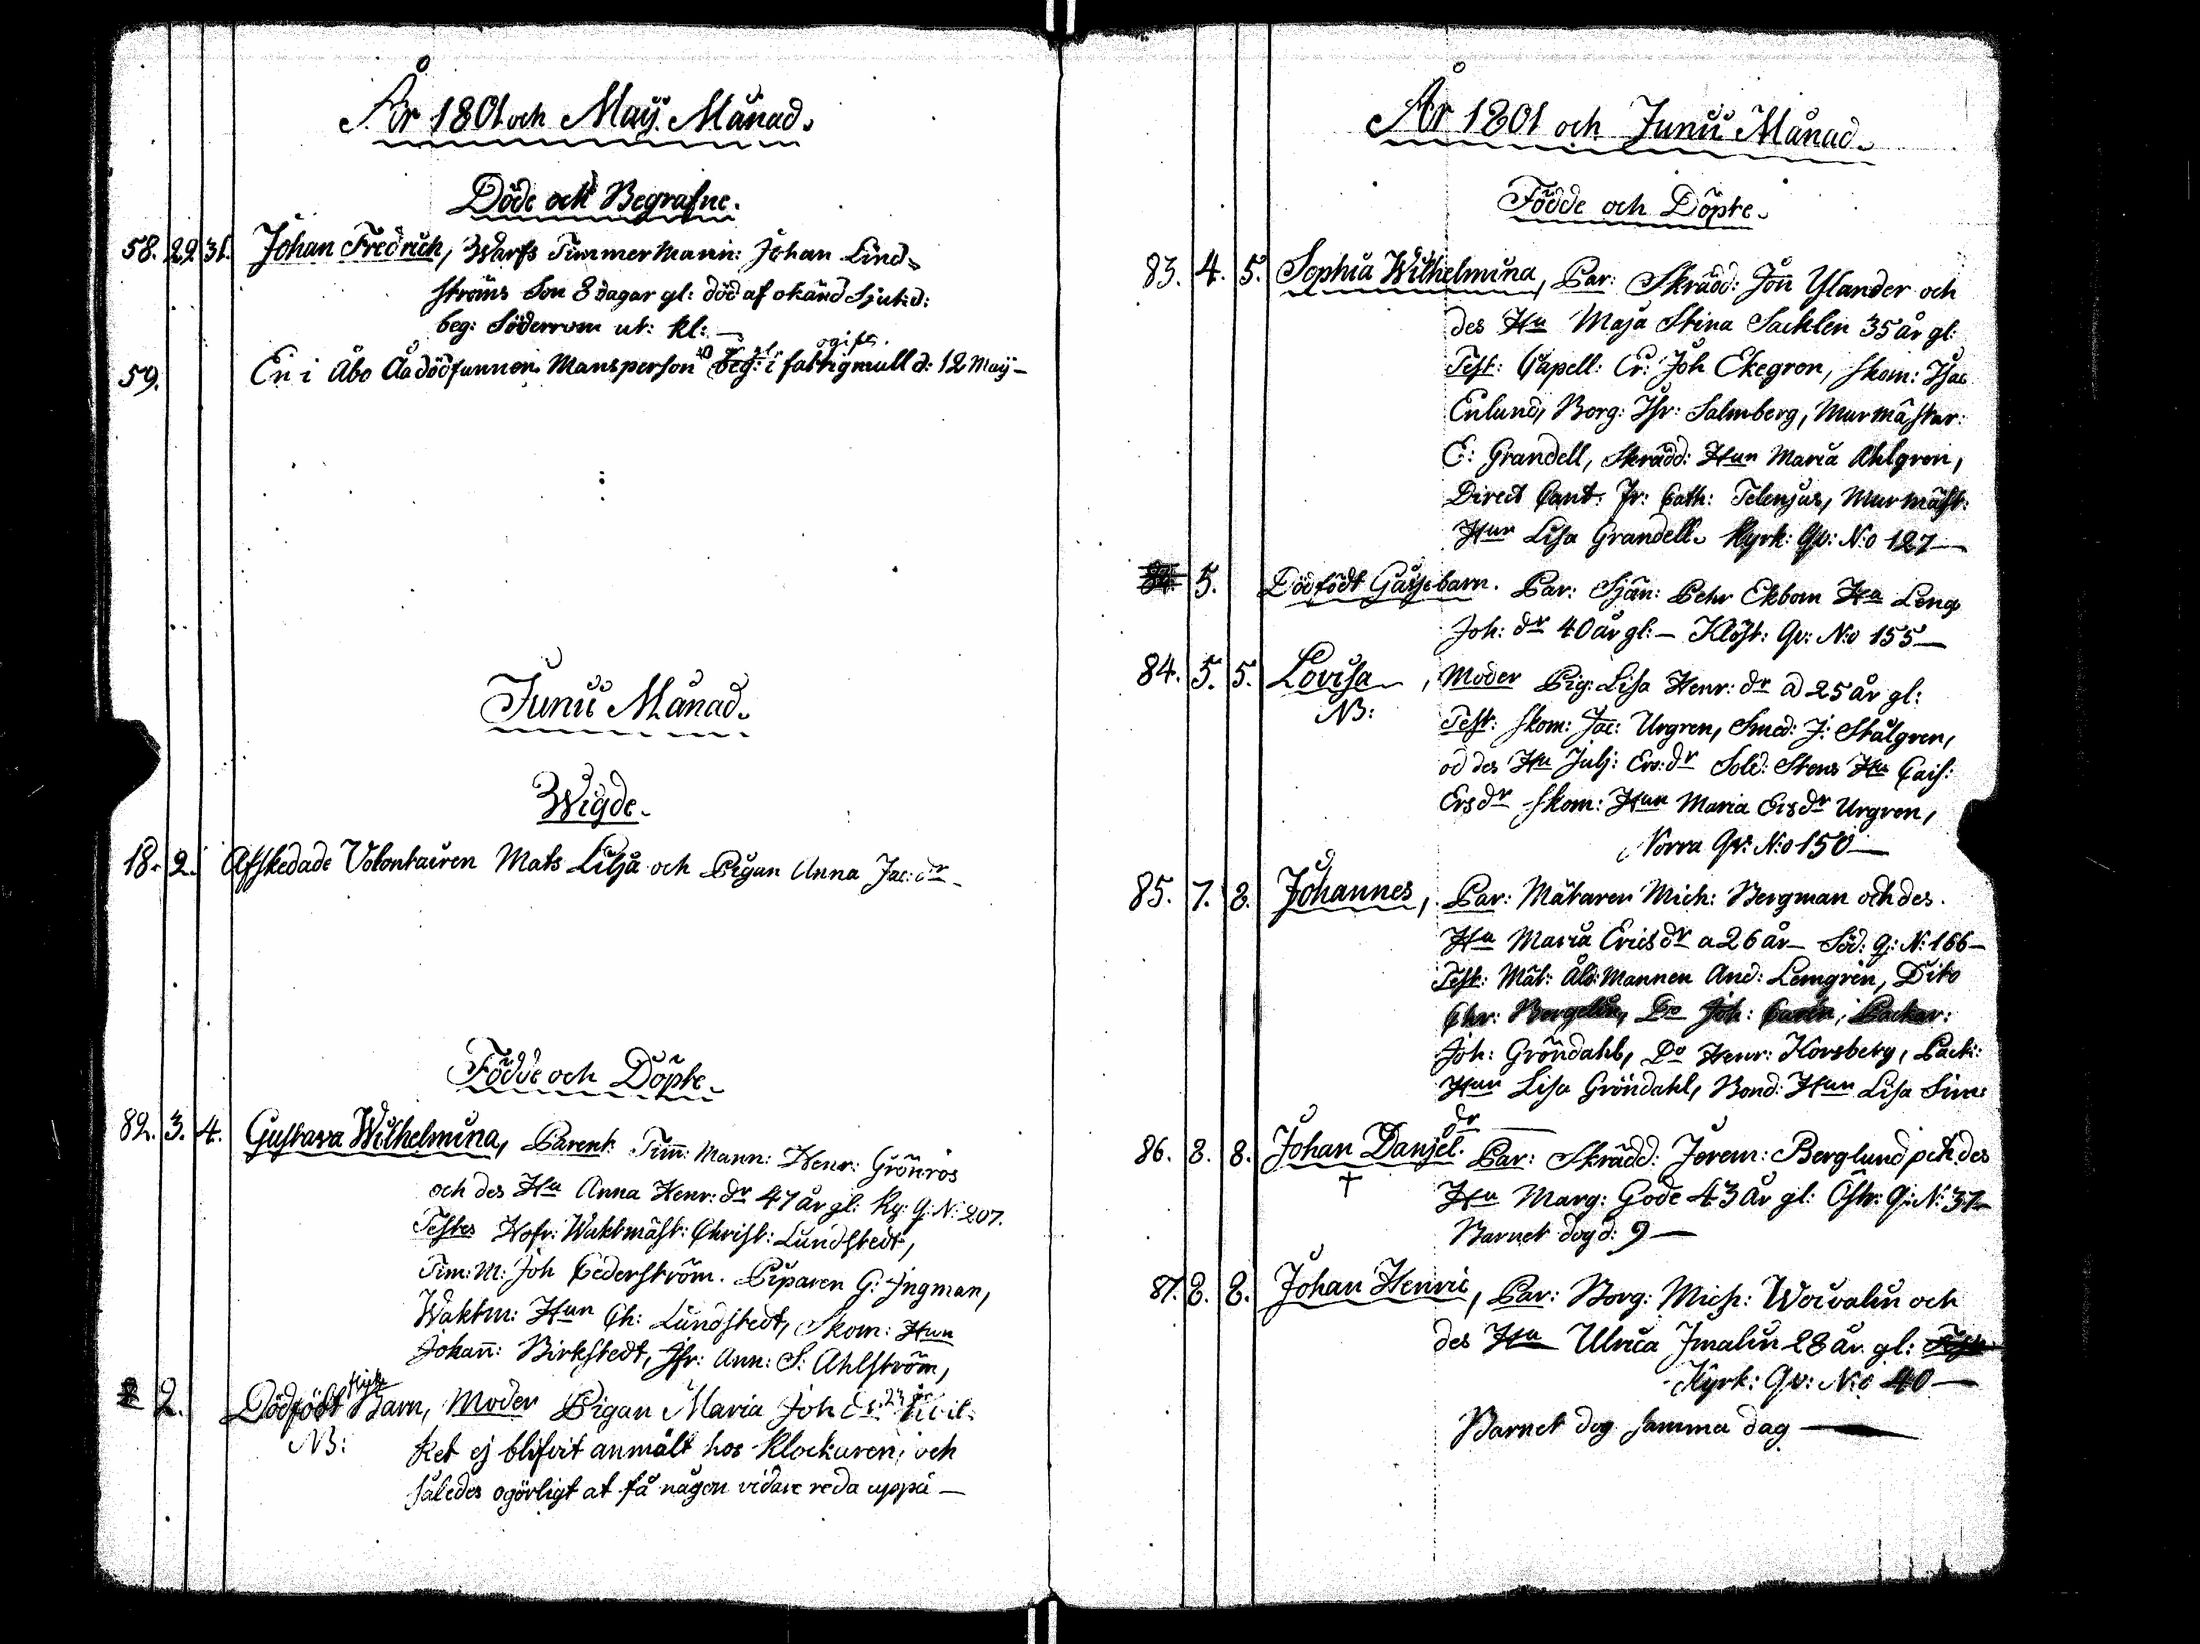 År 1801 och Maÿ Månad.
Döde och Begrafne.
58. 22 31. Johan Fredrich, Warfs Timmermann: Johan Lind-
ströms Son 8 dagar gl: död af okänd Sjuk:d:
beg: Söderrom ut: kl: —
ogift.
59. En i Åbo Åa dödfunnen Mansperson 40 år gl: beg: i fattigmull d: 12 Maÿ —
Junii Månad.
Wigde.
18. 2. Afskedade Volontairen Mats Lilja och Pigan Anna Jac: dr.
Födde och Döpte.
82. 3. 4. Gustava Wilhelmina, Parent: Tim: Mann: Henr: Grönros
och des Hu Anna Henr: dr 47 år gl: Ky: Q: N: 207.
Testes Hofr: Waktmäst: Christ: Lundstedt,
Tim: M: Joh Cederström. Piparen G: Ingman,
Waktm: Hun Ch: Lundstedt, Skom: Hun
Johan: Birkstedt, Jfr: Ann: S: Ahlström,
2. Dödfödt Flicke Barn, Moder Pigan Maria Joh dr 23 år hvil-
NB: ket ej blifvit anmält hos Klockaren, och
således ogörligt at få någon vidare reda uppå —
År 1801 och Junii Månad.
Födde och Döpte.
83. 4. 5. Sophia Wilhelmina, Par: Skrädd: Jon Ylander och
des Hu Maja Stina Sacklen 35 år gl:
Test: Capell: Er: Joh Ekegren, Skom: Isac
Enlund, Borg: Ifr: Salmberg, Murmästar:
E: Grandell, Skrädd: Hun Maria Ahlgren,
Direct Cant: Fr: Cath: Telenjus, Murmäst:
Hun Lisa Grandell. Kyrk: Qv: N:o 127 —
5. Dödfödt Gåsse barn. Par: Sjän: Pehr Ekbom Hu Lena
Joh: dr 40 år gl: — Klöst: Qv: N:o 155 —
84. 5. 5. Lovisa, Moder Pig: Lisa Henr: dr a 25 år gl:
NB: Test: Skom: Jac: Urgren, Smed: J: Stålgren,
od des Hu Julj: Ers: dr Sold: Stens Hu Cais:
Ersdr Skom: Hun Maria Ersdr Urgren,
Norra Qv: N:o 150 —
85. 7. 8. Johannes, Par: Mätaren Mich: Bergman och des
Hu Maria Ericsdr a 26 år — Söd: Q: N: 166 —
Test: Mät: Åld:Mannen And: Lemgren, Dito
Chr: Bergelin, Do Joh: Carln, Packar:
Joh: Gröndahl, Do Henr: Korsberg, Pack:
Hun Lisa Gröndahl, Bond: Hun Lisa Sim:
dr —
86. 8. 8. Johan Danjel. Par: Skrädd: Jerem: Berglund och des
† Hu Marg: Gode 43 år gl: Östr: Q: N: 37 —
Barnet dog d: 9 —
87. 8. 8. Johan Henric, Par: Borg: Mich: Woivalin och
des Hu Ulrica Imalin 28 år gl:
Kyrk: Qv: N:o 40 —
Barnet dog samma dag —